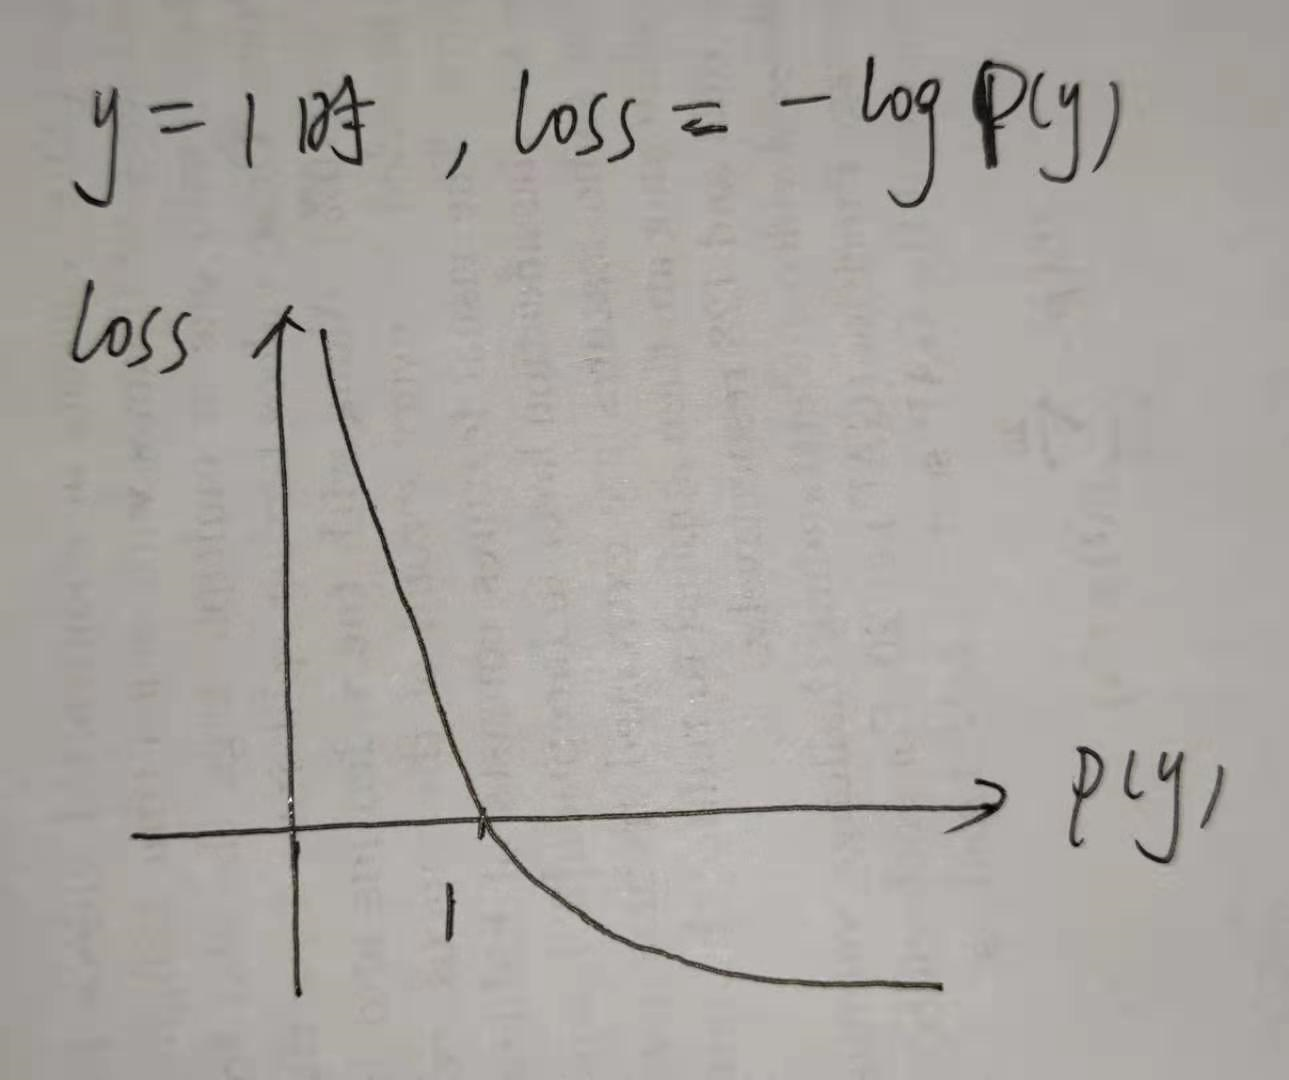 y = 1 时 , loss = - log P(y)
loss
P(y)
1